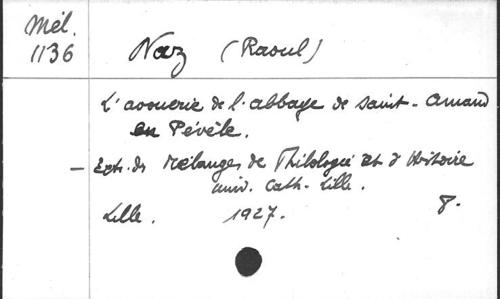 Mél.
1136
Naz (Raoul)
L'avouerie de l'abbaye de Saint-Amand
en Pévèle.
— Extr. des Mélanges de Philologie et d'Histoire
univ. Cath. Lille.
Lille. 1927. 8.